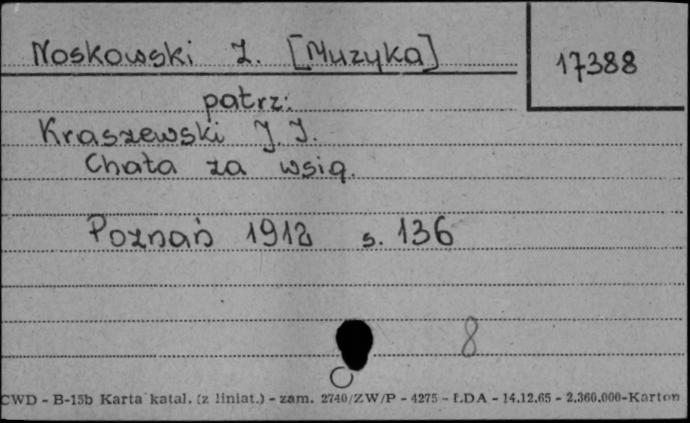 Noskowski Z. [Muzyka]
17388
patrz:
Kraszewski J. I.
Chata za wsią.
Poznań 1912 s. 136
8
CWD - B-15b Karta katal. (z liniat.) - zam. 2740/ZW/P - 4275 - ŁDA - 14.12.65 - 2.360.000-Karton